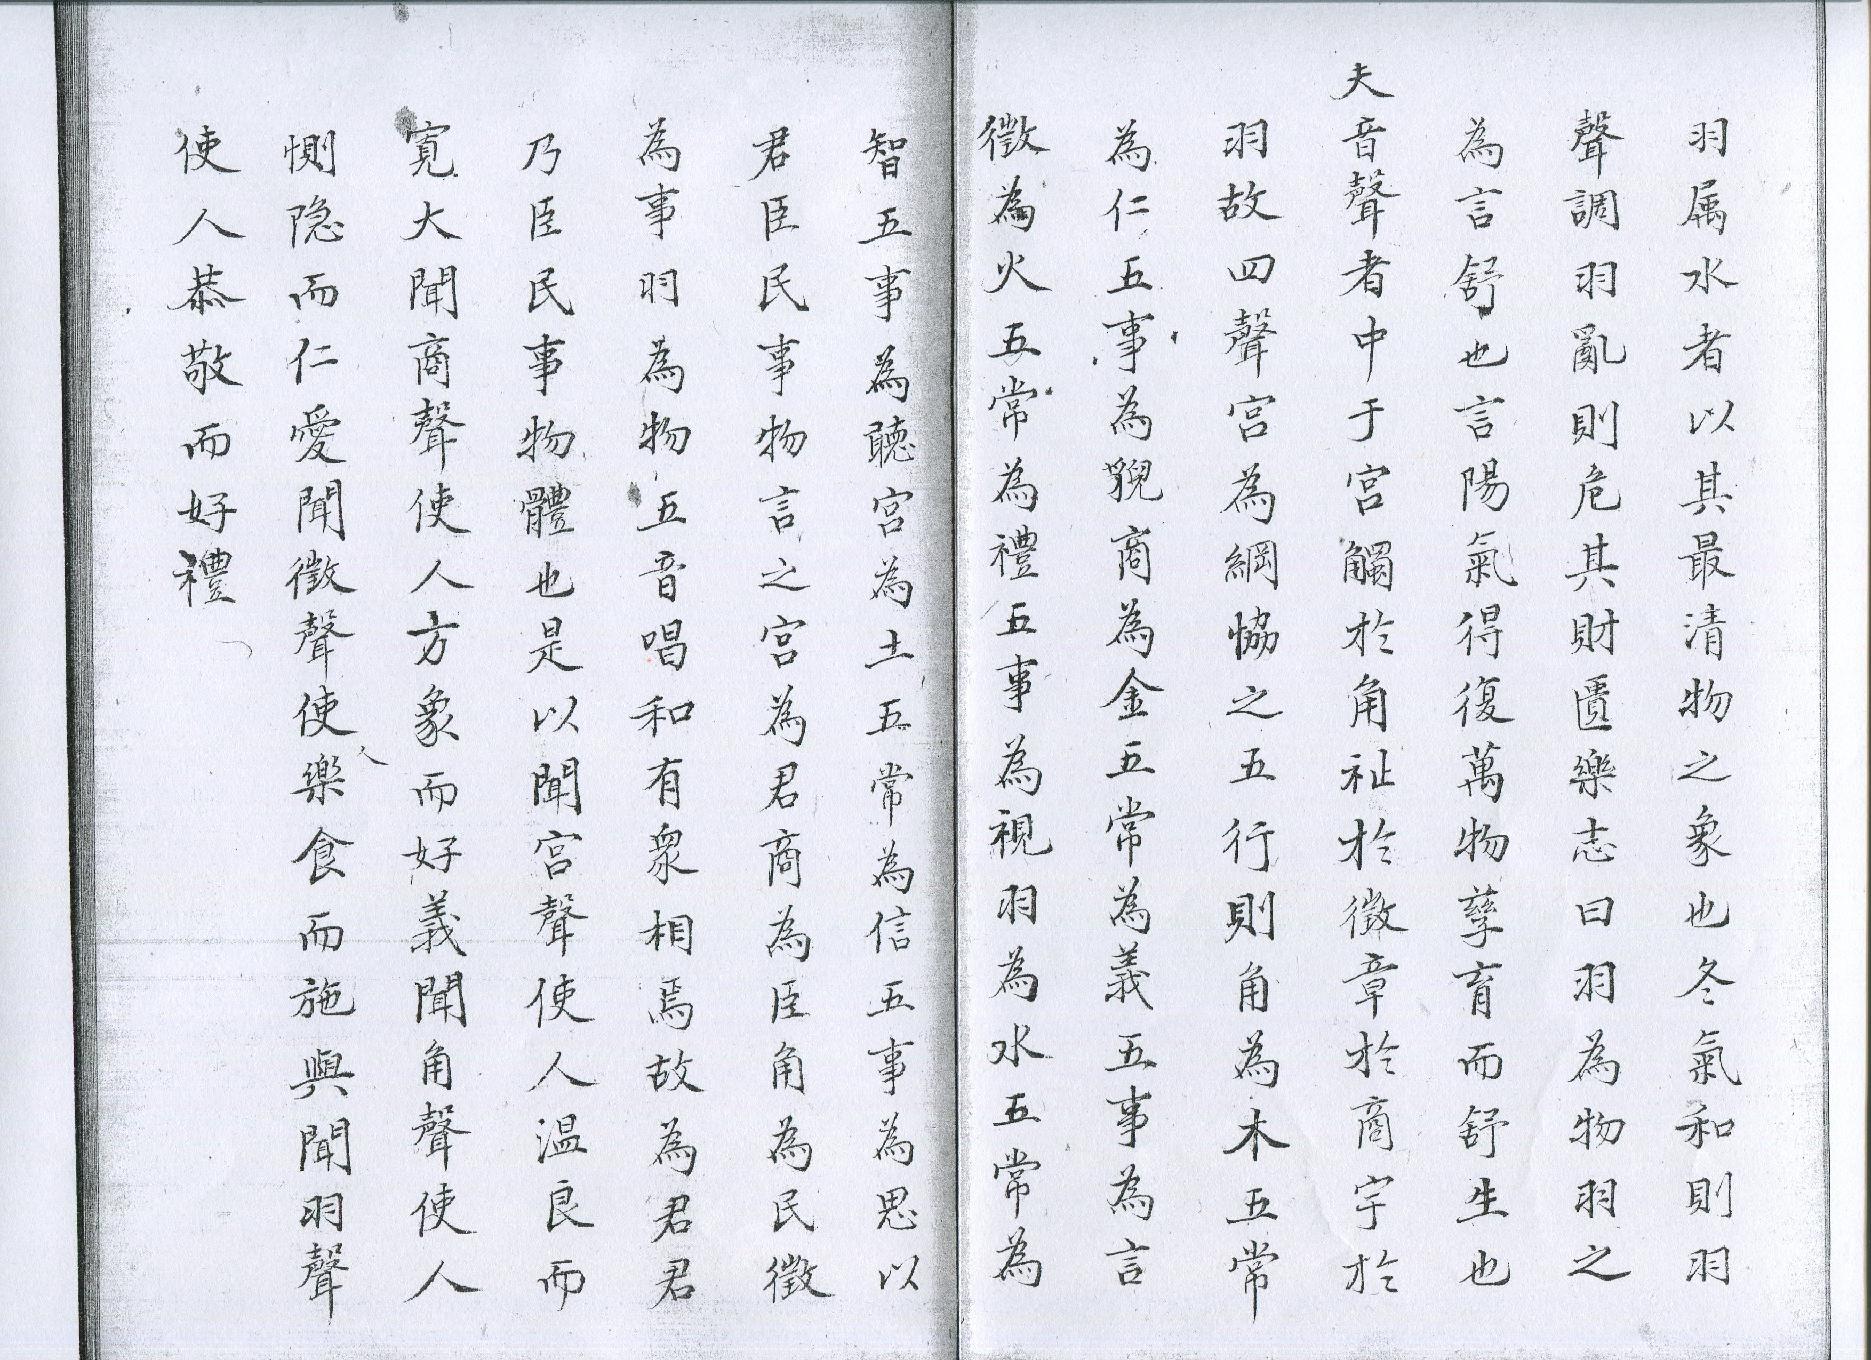 羽属水者以其最清物之象也冬氣和則羽
聲調羽亂則危其財匱樂志曰羽為物羽之
為言舒也言陽氣得復萬物孳育而舒生也
夫音聲者中于宮觸於角祉於徵章於商宇於
羽故四聲宮為綱恊之五行則角為木五常
為仁五事為貌商為金五常為義五事為言
徵為火五常為禮五事為視羽為水五常為
智五事為聽宮為土五常為信五事為思以
君臣民事物言之宮為君商為臣角為民徵
為事羽為物五音唱和有衆相焉故為君君
乃臣民事物體也是以聞宮聲使人温良而
寛大聞商聲使人方象而好義聞角聲使人
惻隐而仁愛聞徵聲使人樂食而施與聞羽聲
使人恭敬而好禮